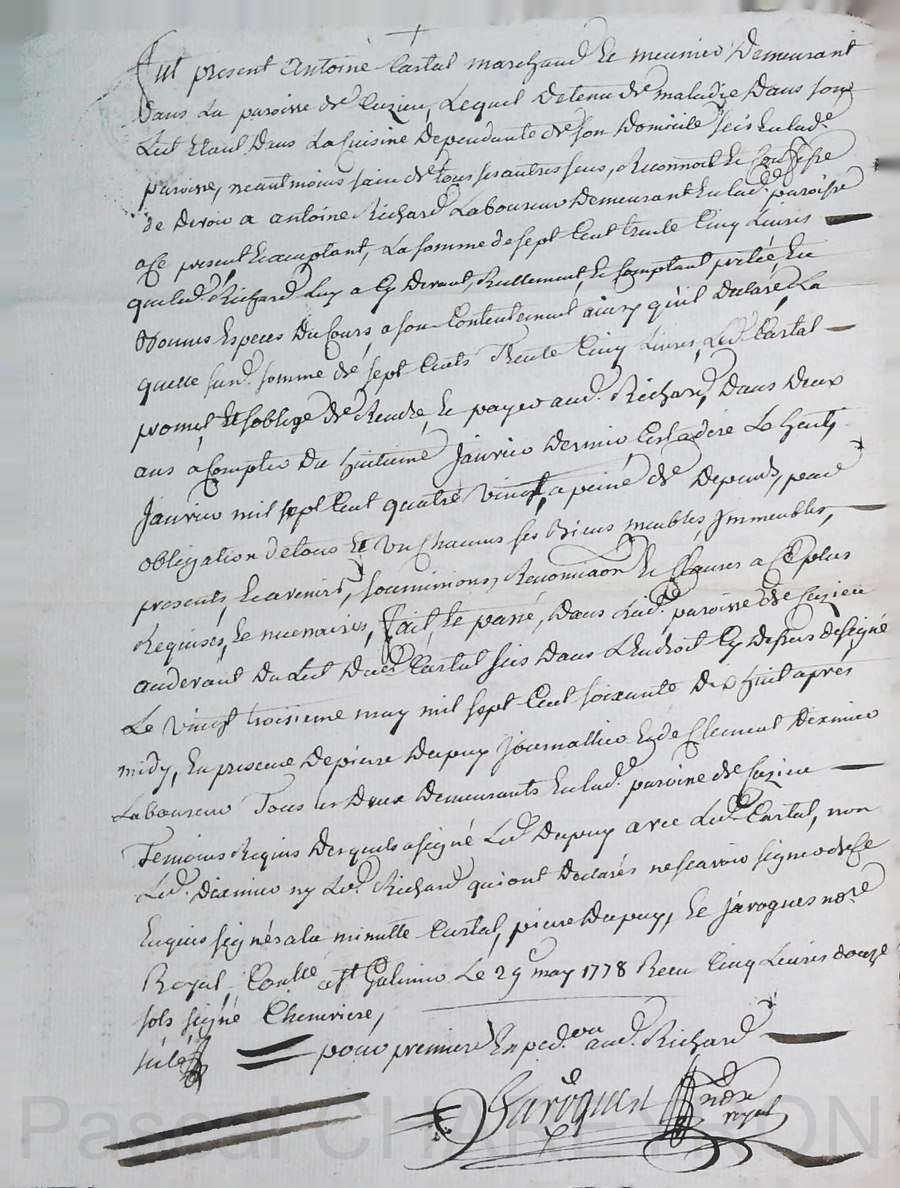 Fut present Antoine Cartal marchand et meunier demeurant
dans la paroisse de Cuzieu, lequel detenu de maladie dans son
lict etant dans la cuisine dependante de son domicile scis en lad.e
paroisse, neantmoins sain de tous ses autres sens, reconnoit et confesse
de devoir a antoine Richard laboureur demeurant en lad.e paroisse
a ce present et acceptant, la somme de sept cent trente cinq livres
que led. Richard luy a cy devant, reellement et comptant pretée en
bonnes especes du cours, a son contentement ainsy qu'il declare, la
quelle susd. somme de sept cents trente cinq livres, led. Cartal
promet et s'oblige de rendre et payer aud. Richard, dans deux
ans a compter du huitieme janvier dernier c'est a dire le huit
janvier mil sept cent quatre vingt, a peine de depends, par
obligation de tous et un chacuns ses biens meubles, immeubles,
presents, et avenirs, soumissions, renonciaon et clauses a ce plus
requises, et necessaires, fait et passé, dans lad.e paroisse de Cuzieu
audevant du lict dud. Cartal scis dans l'endroit cy dessus designé
le vingt troisieme may mil sept cent soixante dix huit apres
midy, en presence de pierre Dupuy journallier et de Clement
laboureur tous les deux demeurants en lad.e paroisse de Cuzieu
temoins requis desquels a signé led. Dupuy avec led. Cartal, non
led. ny led. Richard qui ont declarés ne scavoir signer de ce
enquis signés a la minutte Cartal, pierre Dupuy, et Javogues no.re
Royal, Contlé a St Galmier le 29 may 1778 Recu cinq livres douze
sols signé Chenevriere,
pour premiere Exped.on aud. Richard
Javogues no.re
royal
Pascal CHAREYRON